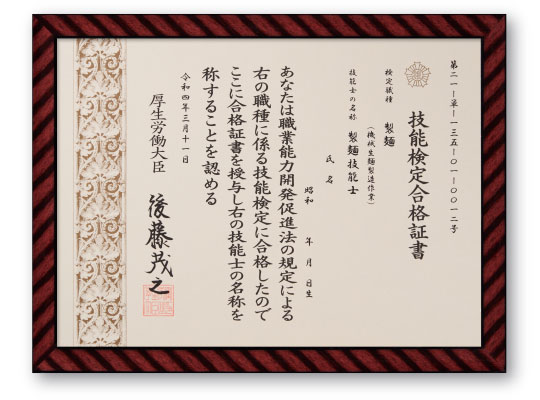 第二一ー単ー一三五ー〇一ー〇〇一二号
技能検定合格証書
検定職種　製麺
(機械生麺製造作業)
技能士の名称　製麺技能士
氏名
昭和　年　月　日生
あなたは職業能力開発促進法の規定による
右の職種に係る技能検定に合格したので
ここに合格証書を授与し右の技能士の名称を
称することを認める
令和四年三月十一日
厚生労働大臣　後藤茂之